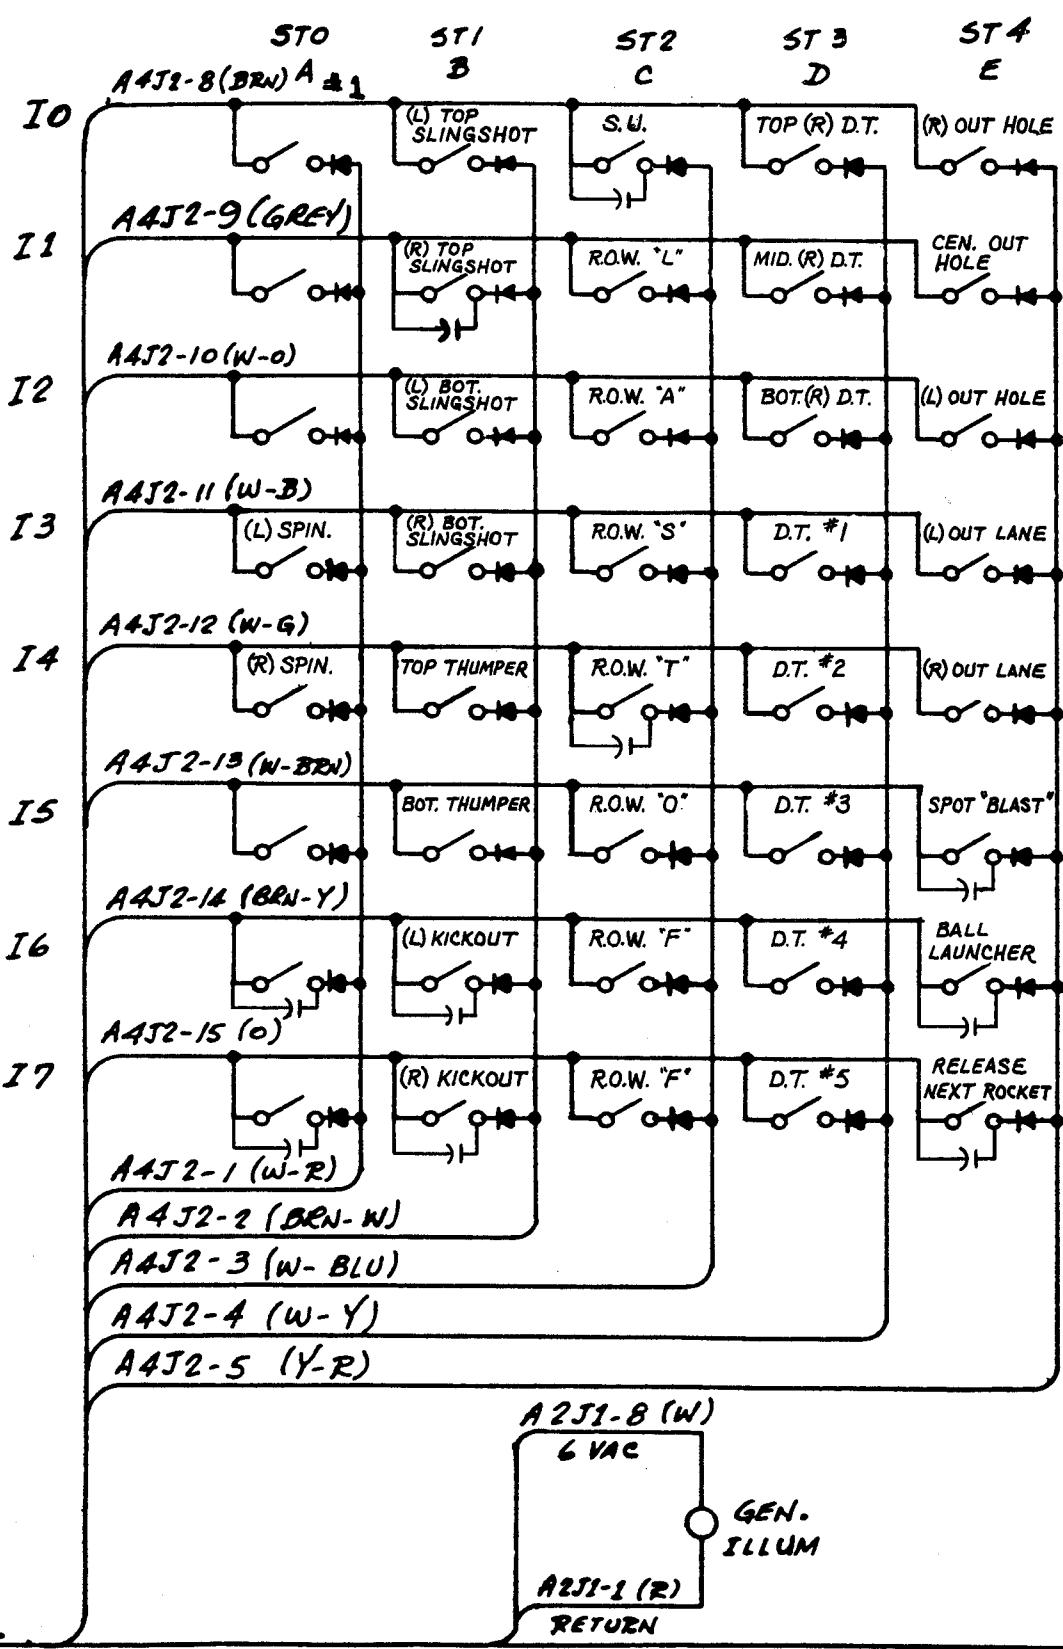 ST0 ST1 ST2 ST3 ST4
A B C D E
A4J2-8 (BRN) #1
I0
(L) TOP
SLINGSHOT
S.U.
TOP (R) D.T.
(R) OUT HOLE
A4J2-9 (GREY)
I1
(R) TOP
SLINGSHOT
R.O.W. "L"
MID. (R) D.T.
CEN. OUT
HOLE
A4J2-10 (W-O)
I2
(L) BOT.
SLINGSHOT
R.O.W. "A"
BOT.(R) D.T.
(L) OUT HOLE
A4J2-11 (W-B)
I3
(L) SPIN.
(R) BOT.
SLINGSHOT
R.O.W. "S"
D.T. #1
(L) OUT LANE
A4J2-12 (W-G)
I4
(R) SPIN.
TOP THUMPER
R.O.W. "T"
D.T. #2
(R) OUT LANE
A4J2-13 (W-BRN)
I5
BOT. THUMPER
R.O.W. "O"
D.T. #3
SPOT "BLAST"
A4J2-14 (BRN-Y)
I6
(L) KICKOUT
R.O.W. "F"
D.T. #4
BALL
LAUNCHER
A4J2-15 (O)
I7
(R) KICKOUT
R.O.W. "F"
D.T. #5
RELEASE
NEXT ROCKET
A4J2-1 (W-R)
A4J2-2 (BRN-W)
A4J2-3 (W-BLU)
A4J2-4 (W-Y)
A4J2-5 (Y-R)
A2J1-8 (W)
6 VAC
GEN.
ILLUM
A2J1-1 (R)
RETURN